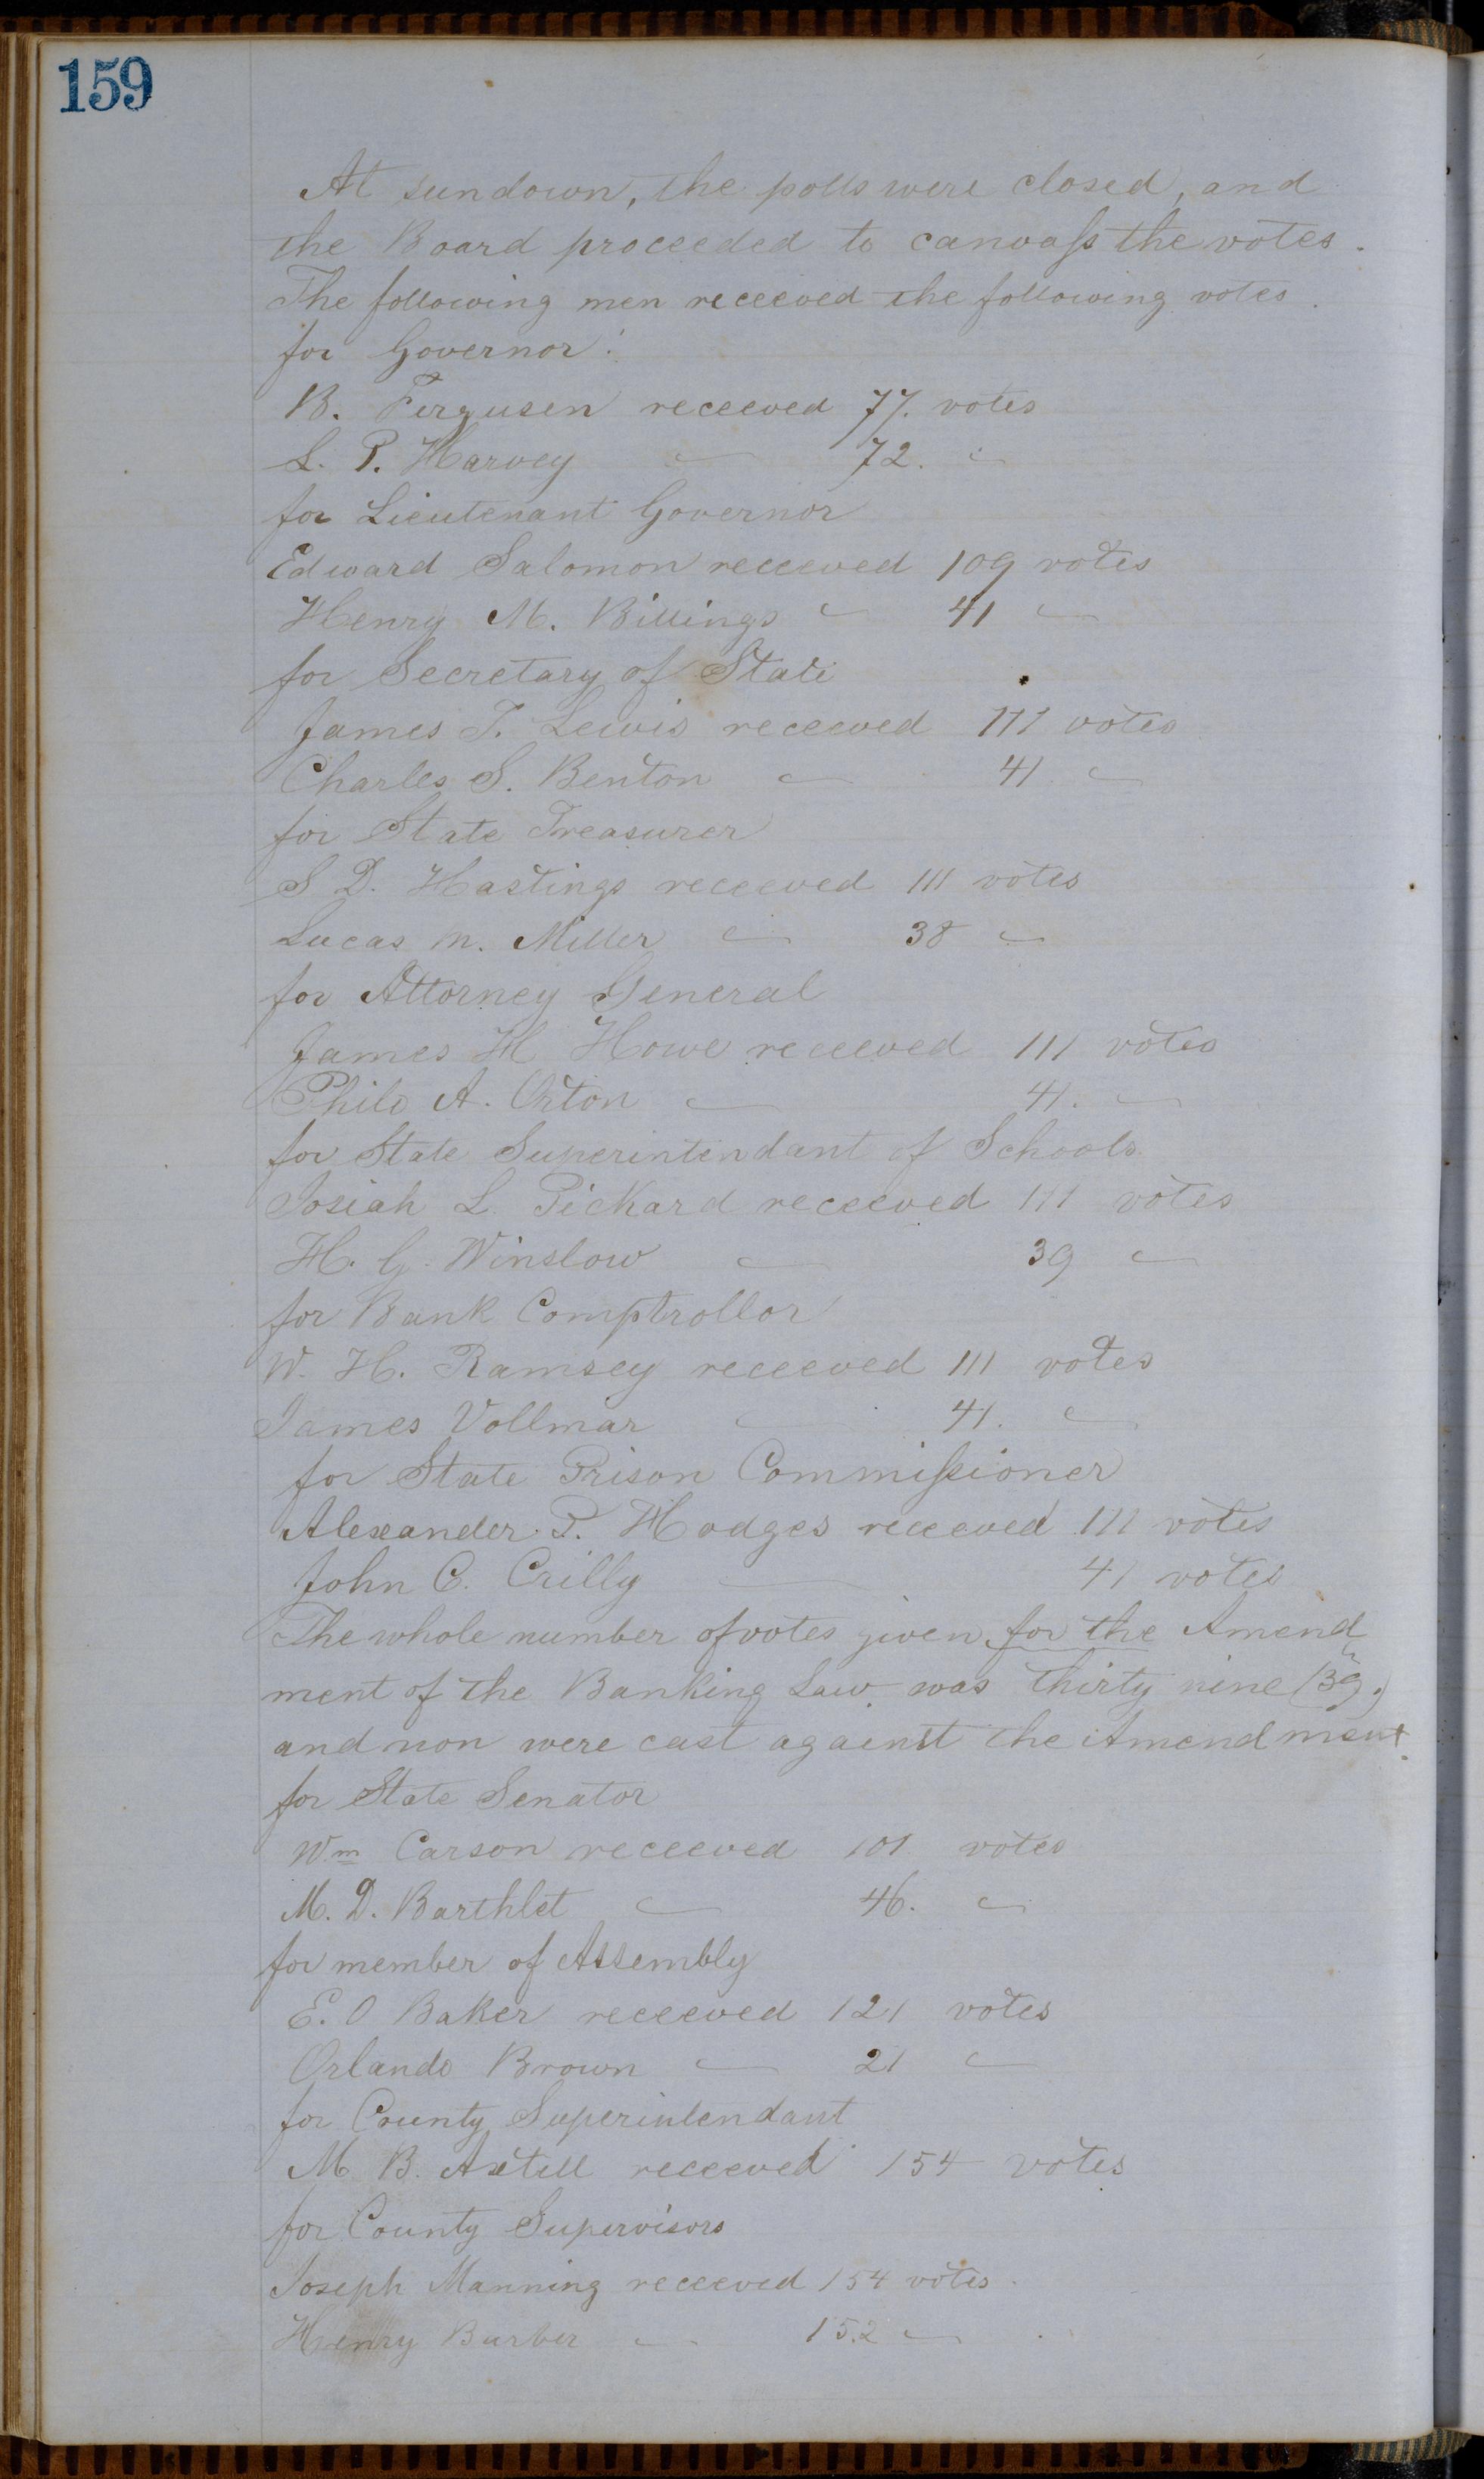 159
At sundown, the polls were closed, and
the Board proceeded to canvaſs the votes.
The following men received the following votes.
for Governor:
B. Fergusen received 77. votes
L. P. Harvey — 72. "
for Lieutenant Governor
Edward Salomon received 109 votes
Henry M. Billings " 41 "
for Secretary of State
James T. Lewis received 111 votes
Charles S. Benton " 41. "
for State Treasurer
S D. Hastings received 111 votes
Lucas M. Miller " 38 "
for Attorney General
James H Howe received 111 votes
Philo A. Orton " 41. "
for State Superintendant of Schools.
Josiah L. Pickard received 111 votes
H. G. Winslow " 39 "
for Bank Comptrollor
W. H. Ramsey received 111 votes
James Vollmar " 41. "
for State Prison Commiſsioner
Alexander P. Hodges received 111 votes
John C. Crilly — 41 votes
The whole number of votes given for the Amend
ment of the Banking Law was thirty nine (39.)
and non were cast against the Amendment.
for State Senator
Wm Carson received 101 votes
M. D. Barthlet " 46. "
for member of Assembly
E. O Baker received 121 votes
Orlando Brown " 21 "
for County Superintendant
M. B. Axtell received 154 votes
for County Supervisors
Joseph Manning received 154 votes.
Henry Barber " 152 "